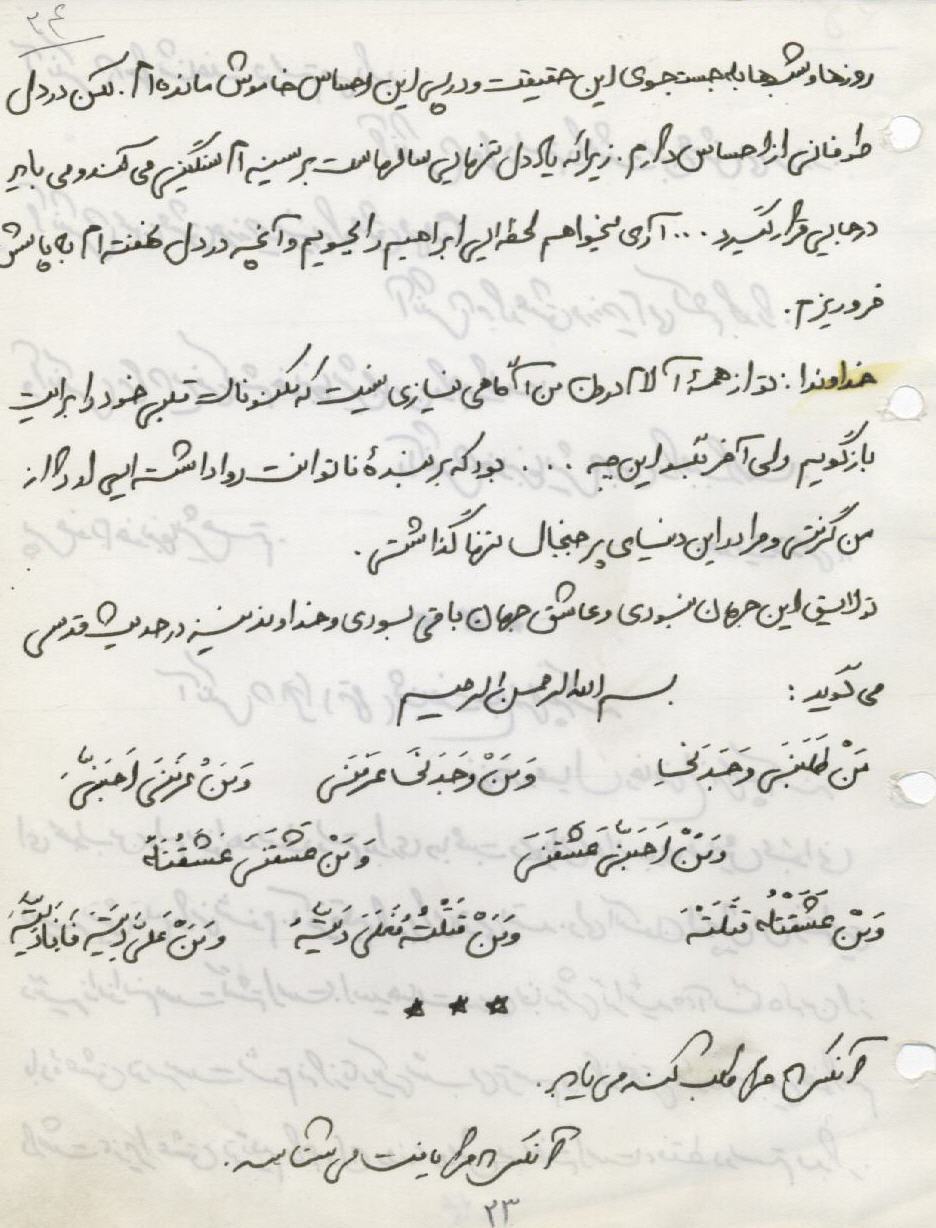 ۲۴
روزها و شبها به جستجوی این حقیقت و در پی این احساس خاموش مانده‌ام. لکن در دل
طوفانی از احساس دارم. زیرا که یاد دل تنهایی سالهاست بر سینه‌ام سنگینی می‌کند و می‌باید
در جایی قرار گیرد ... آری میخواهم لحظه‌ایی ابراهیم را بجویم و آنچه در دل نهفته‌ام به پایش
فرو ریزم.
خداوندا: تو از همهٔ آلام درون من آگاهی نیازی نیست که مکنونات قلبی خود را برایت
بازگویم ولی آخر تقدیر این چه .... بود که بر بندهٔ ناتوانت روا داشته‌ایی او را از
من گرفتی و مرا در این دنیای پر جنجال تنها گذاشتی.
تو لایق این جهان نبودی و عاشق جهان باقی بودی و خداوند نیز در حدیث قدسی
می‌گوید: بسم الله الرحمن الرحیم
مَنْ طَلَبَنی وَجَدَنی وَ مَنْ وَجَدَنی عَرَفَنی وَ مَنْ عَرَفَنی اَحَبَّنی
وَ مَنْ اَحَبَّنی عَشَقَنی وَ مَنْ عَشَقَنی عَشَقْتُهُ
وَ مَنْ عَشَقْتُهُ قَتَلْتُهُ وَ مَنْ قَتَلْتُهُ فَعَلَیَّ دِیَتُهُ وَ مَنْ عَلَیَّ دِیَتُهُ فَاَنَا دِیَتُهُ
★ ★ ★
آنکس که مرا طلب کند می‌یابد.
آنکس که مرا یافت می‌شناسد.
۲۳